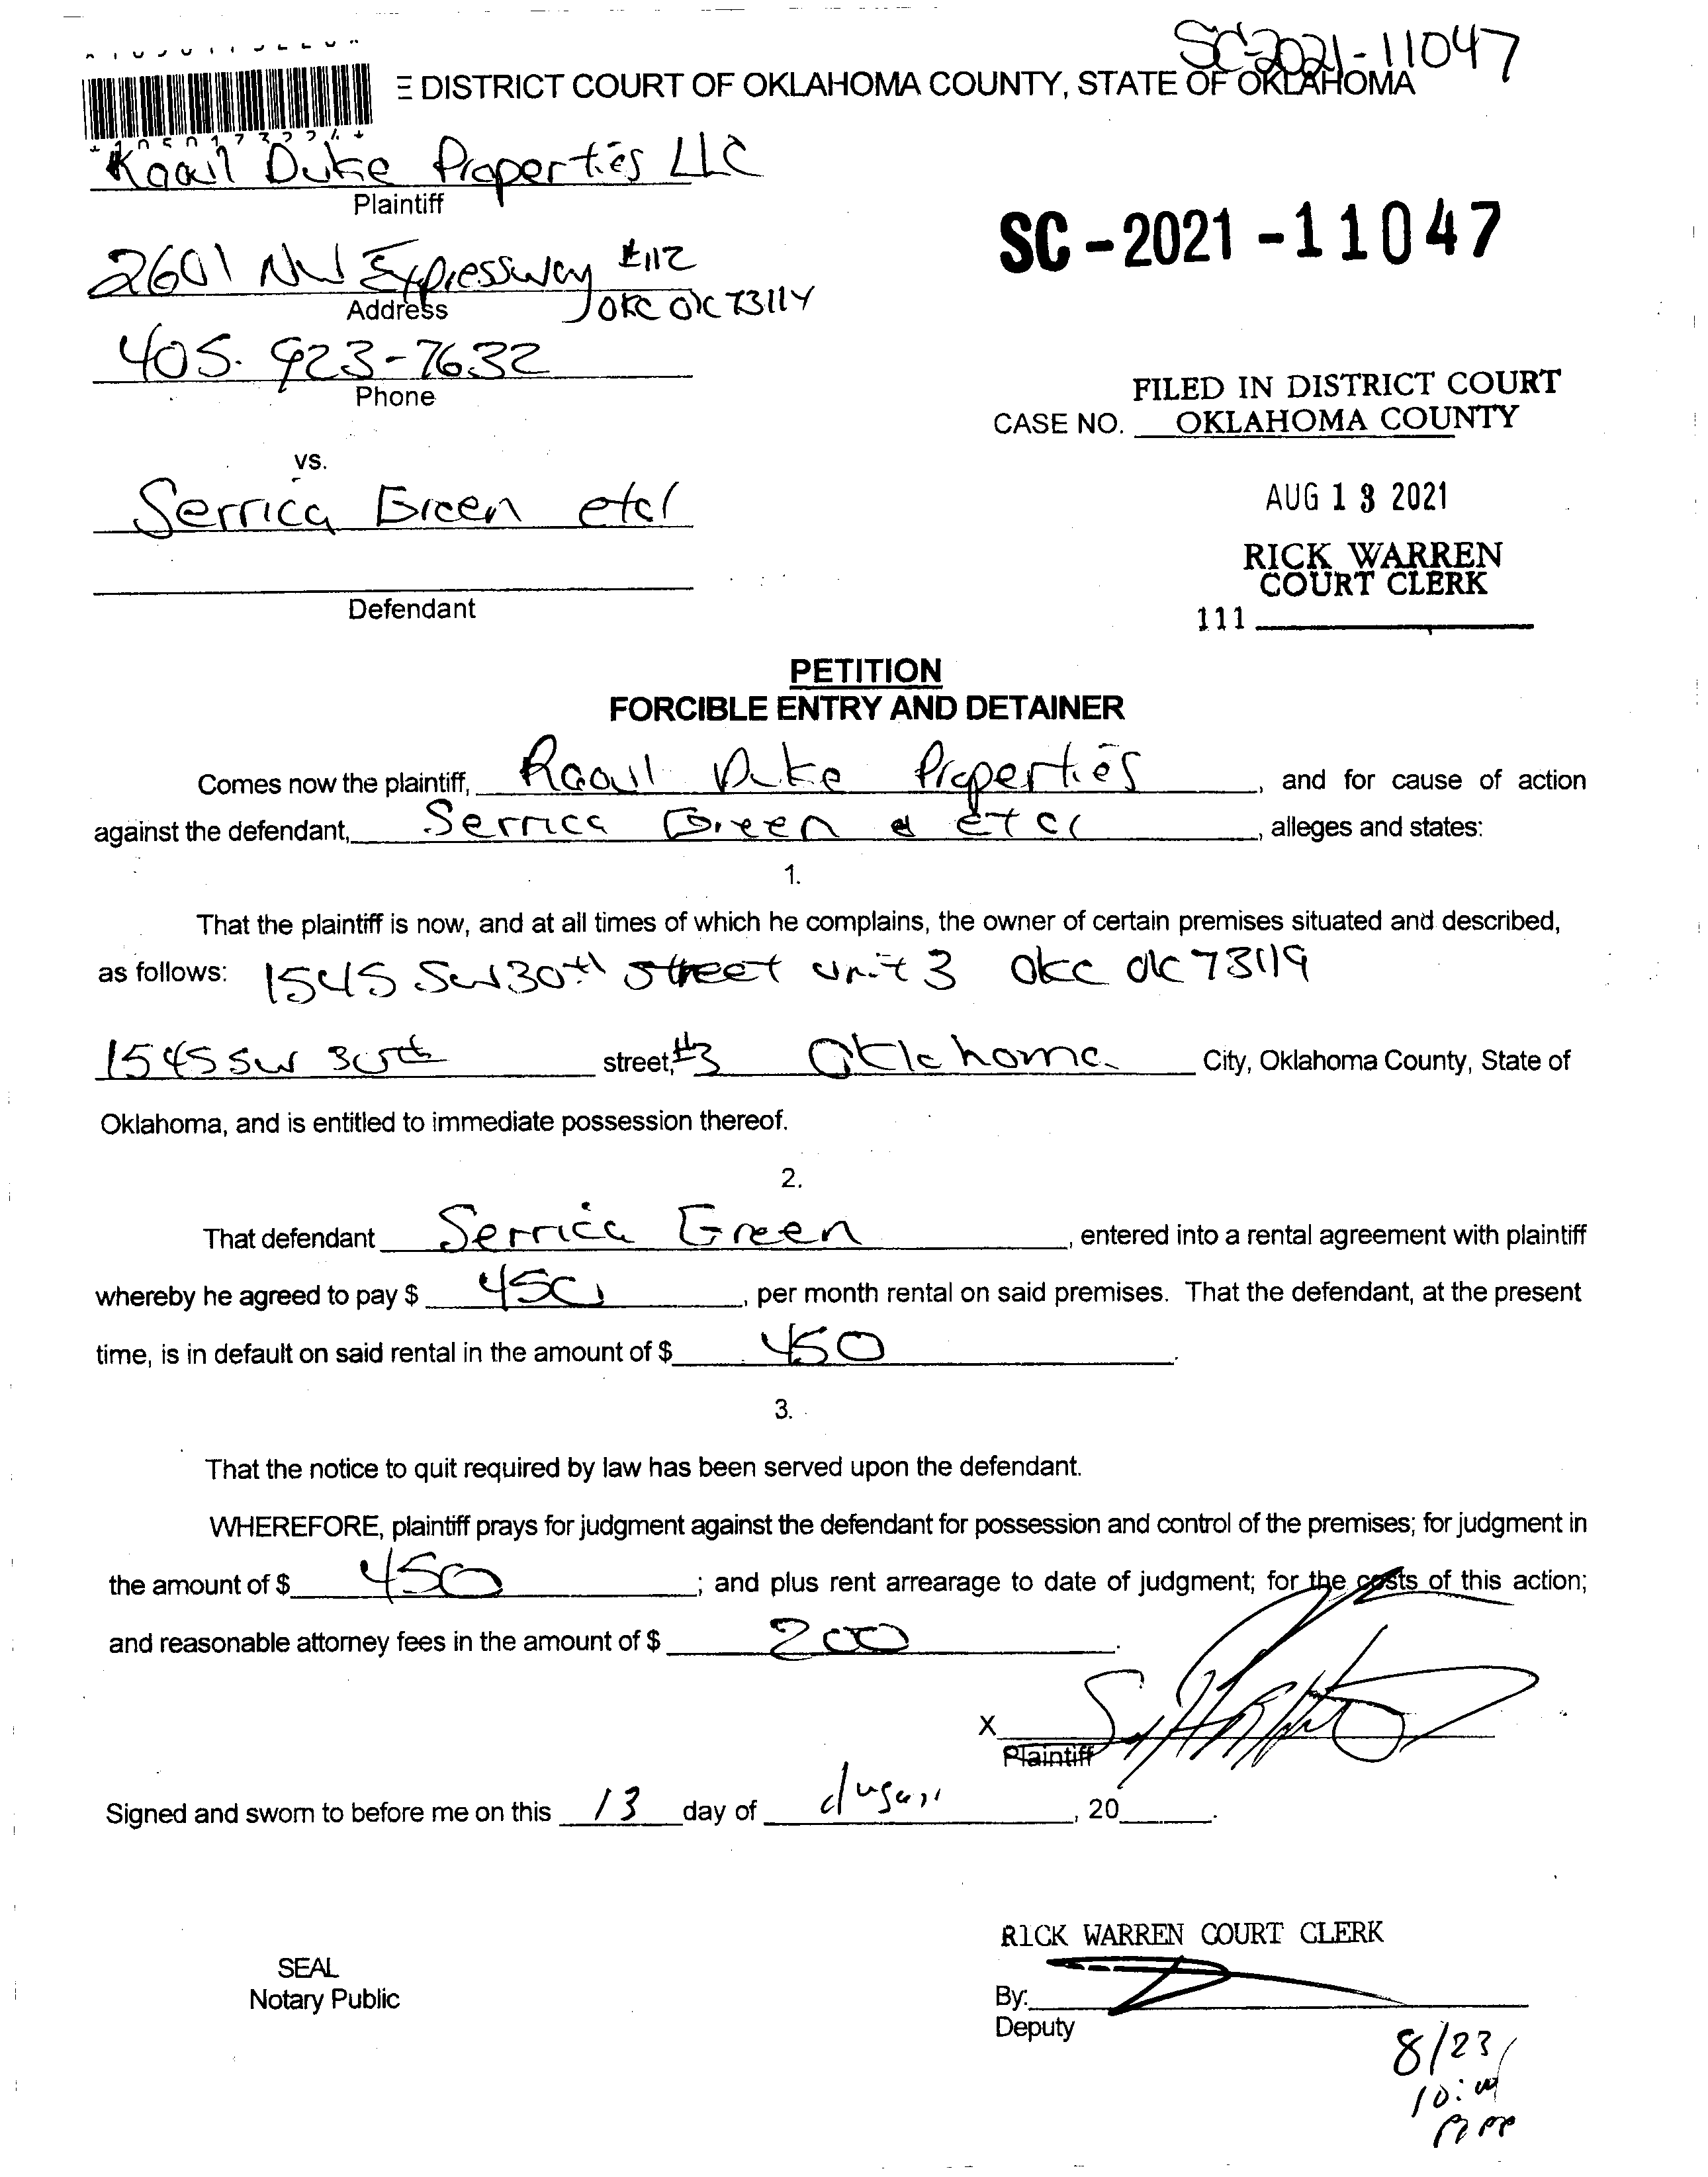 SC-2021-11047
E DISTRICT COURT OF OKLAHOMA COUNTY, STATE OF OKLAHOMA
Raoul Duke Properties LLC
Plaintiff
SC-2021-11047
2601 NW Expressway #112
Address
OKC OK 73114
405-923-7632
Phone
FILED IN DISTRICT COURT
CASE NO. OKLAHOMA COUNTY
vs.
Serrica Green etal
AUG 13 2021
RICK WARREN
COURT CLERK
Defendant
111
PETITION
FORCIBLE ENTRY AND DETAINER
Comes now the plaintiff, Raoul Duke Properties, and for cause of action
against the defendant, Serrica Green & etal, alleges and states:
1.
That the plaintiff is now, and at all times of which he complains, the owner of certain premises situated and described,
as follows: 1545 SW 30th Street unit 3 OKC OK 73119
1545 SW 30th street, #3 Oklahoma City, Oklahoma County, State of
Oklahoma, and is entitled to immediate possession thereof.
2.
That defendant Serrica Green, entered into a rental agreement with plaintiff
whereby he agreed to pay $ 450, per month rental on said premises. That the defendant, at the present
time, is in default on said rental in the amount of $ 450.
3.
That the notice to quit required by law has been served upon the defendant.
WHEREFORE, plaintiff prays for judgment against the defendant for possession and control of the premises; for judgment in
the amount of $ 450; and plus rent arrearage to date of judgment; for the costs of this action;
and reasonable attorney fees in the amount of $ 200.
X
Plaintiff
Signed and sworn to before me on this 13 day of August, 20.
RICK WARREN COURT CLERK
SEAL
Notary Public
By:
Deputy
8/23
10:00